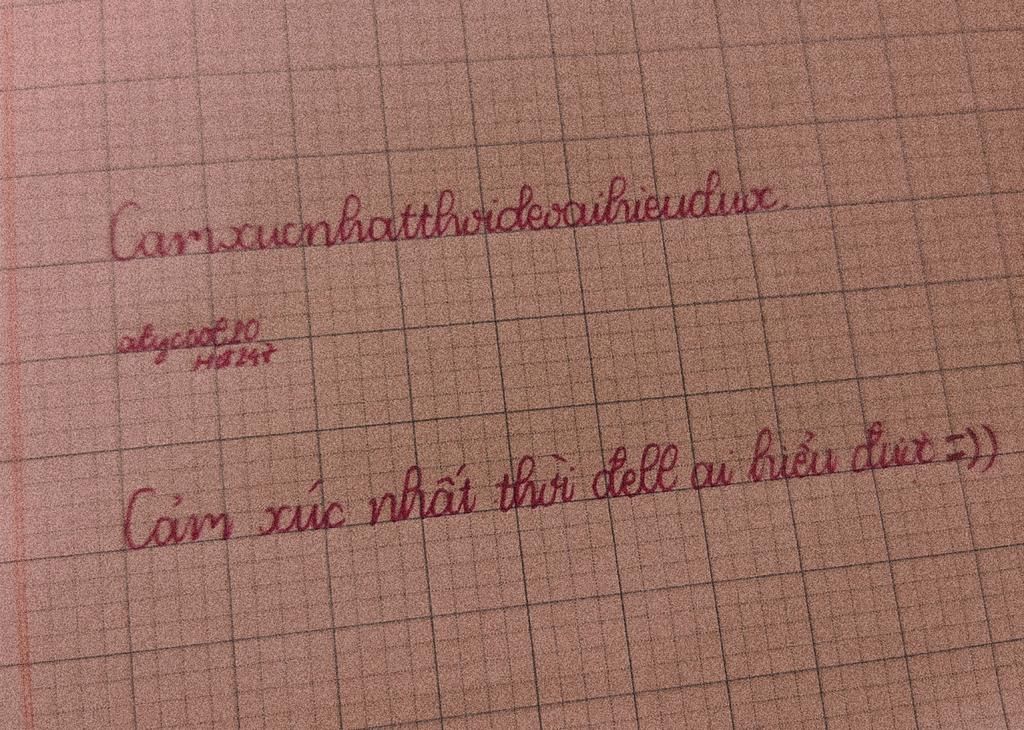 Camxucnhatthoideoaihieuduoc.
alycool20
Hd247
Cảm xúc nhất thời dell ai hiểu được =))